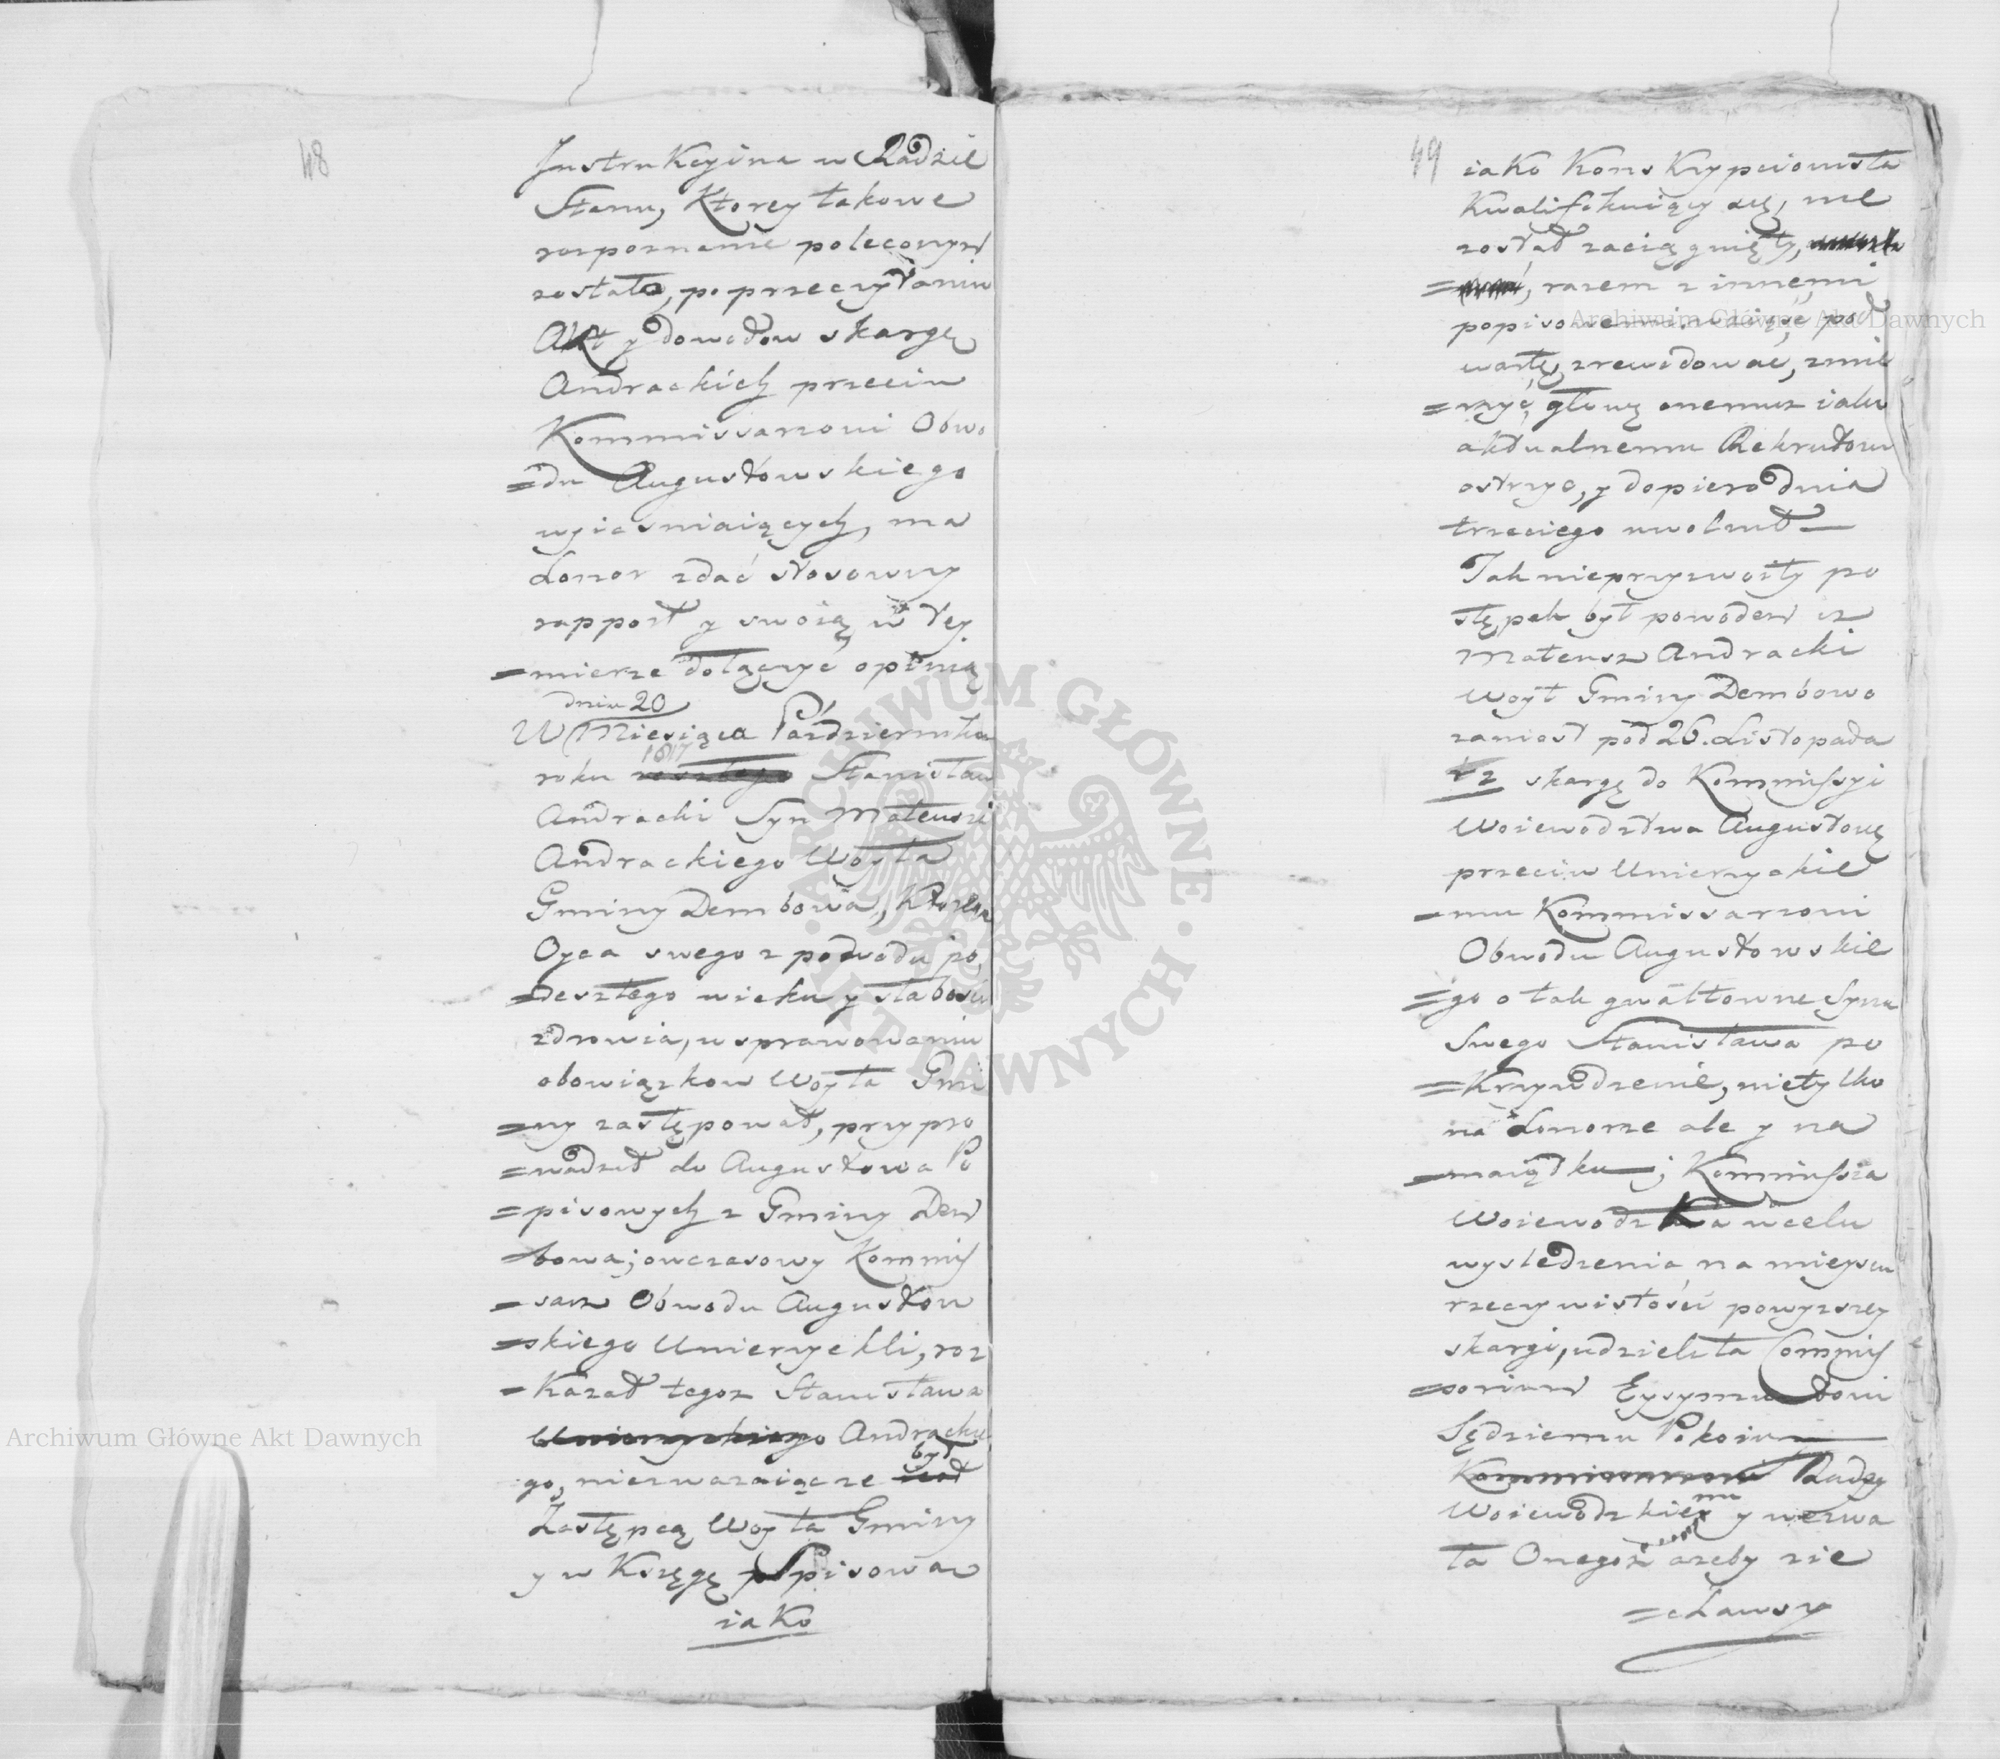 48
Instrukcyina w Radzie
Stanu, Ktorey takowe
rozpoznanie poleconym
zostało, po przeczytaniu
Akt y dowodow skargę
Andrackich przeciw
Kommissarzowi Obwo
=du Augustowskiego
wyiasniaiących, ma
honor zdać stosowny
rapport y swoią w tey
=mierze dołączyć opinią
dniu 20
W Miesiącu Październiku
1817
roku zeszłego Stanisław
Andracki Syn Mateusza
Andrackiego Woyta
Gminy Dembowa, Ktory
Oyca swego z powodu po
=deszłego wieku y słabości
zdrowia, w sprawowaniu
obowiązkow Woyta Gmi
=ny zastępował, przypro
=wadził do Augustowa Po
=pisowych z Gminy Dem
=bowa; owczasowy Kommis
=sarz Obwodu Augustow
=skiego Unierzycki, roz
=kazał tegoż Stanisława
Unierzyckiego Andrackie
był
go, niezważaiąc ze
Zastępcą Woyta Gminy
y w Księgę Spisową
iako
49
iako Konskrypcionista
Kwalifikuiący się, nie
został zaciągnięty,
razem z innemi
popisowemi wziąść pod
wartę, zrewidować, zmie
=rzyć, głowę onemuz iako
aktualnemu Rekrutowi
ostrzyc, y dopiero dnia
trzeciego uwolnił
Tak nieprzyzwoity po
stępek był powodem iz
Mateusz Andracki
Woyt Gminy Dembowo
zaniosł pod 26. Listopada
tr skargę do Kommissyi
Woiewodztwa Augustowę
przeciw Unierzyckie
=mu Kommissarzowi
Obwodu Augustowskie
=go o tak gwałtowne Syna
Swego Stanisława po
=krzywdzenie, nietylko
na honorze ale y na
=maiątku; Kommissia
Woiewodzka w celu
wysledzenia na mieyscu
rzeczywistości powyzszey
skargi, udzieliła Commis
=sorium Eysymontowi
Sędziemu Pokoiu
Kommissarzowi Radzy
mu
Woiewodzkie y wezwa
ła Onegoż azeby zie
=chawszy